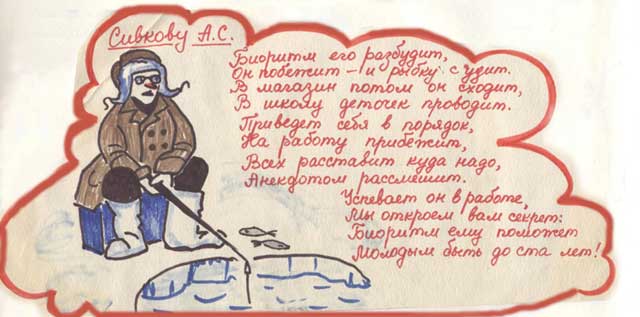 Сивкову А.С.
Биоритм его разбудит,
Он побежит – и рыбку с удит.
В магазин потом он сходит,
В школу деточек проводит.
Приведет себя в порядок,
На работу прибежит,
Всех расставит куда надо,
Анекдотом рассмешит.
Успевает он в работе,
Мы откроем вам секрет:
Биоритм ему поможет
Молодым быть до ста лет!